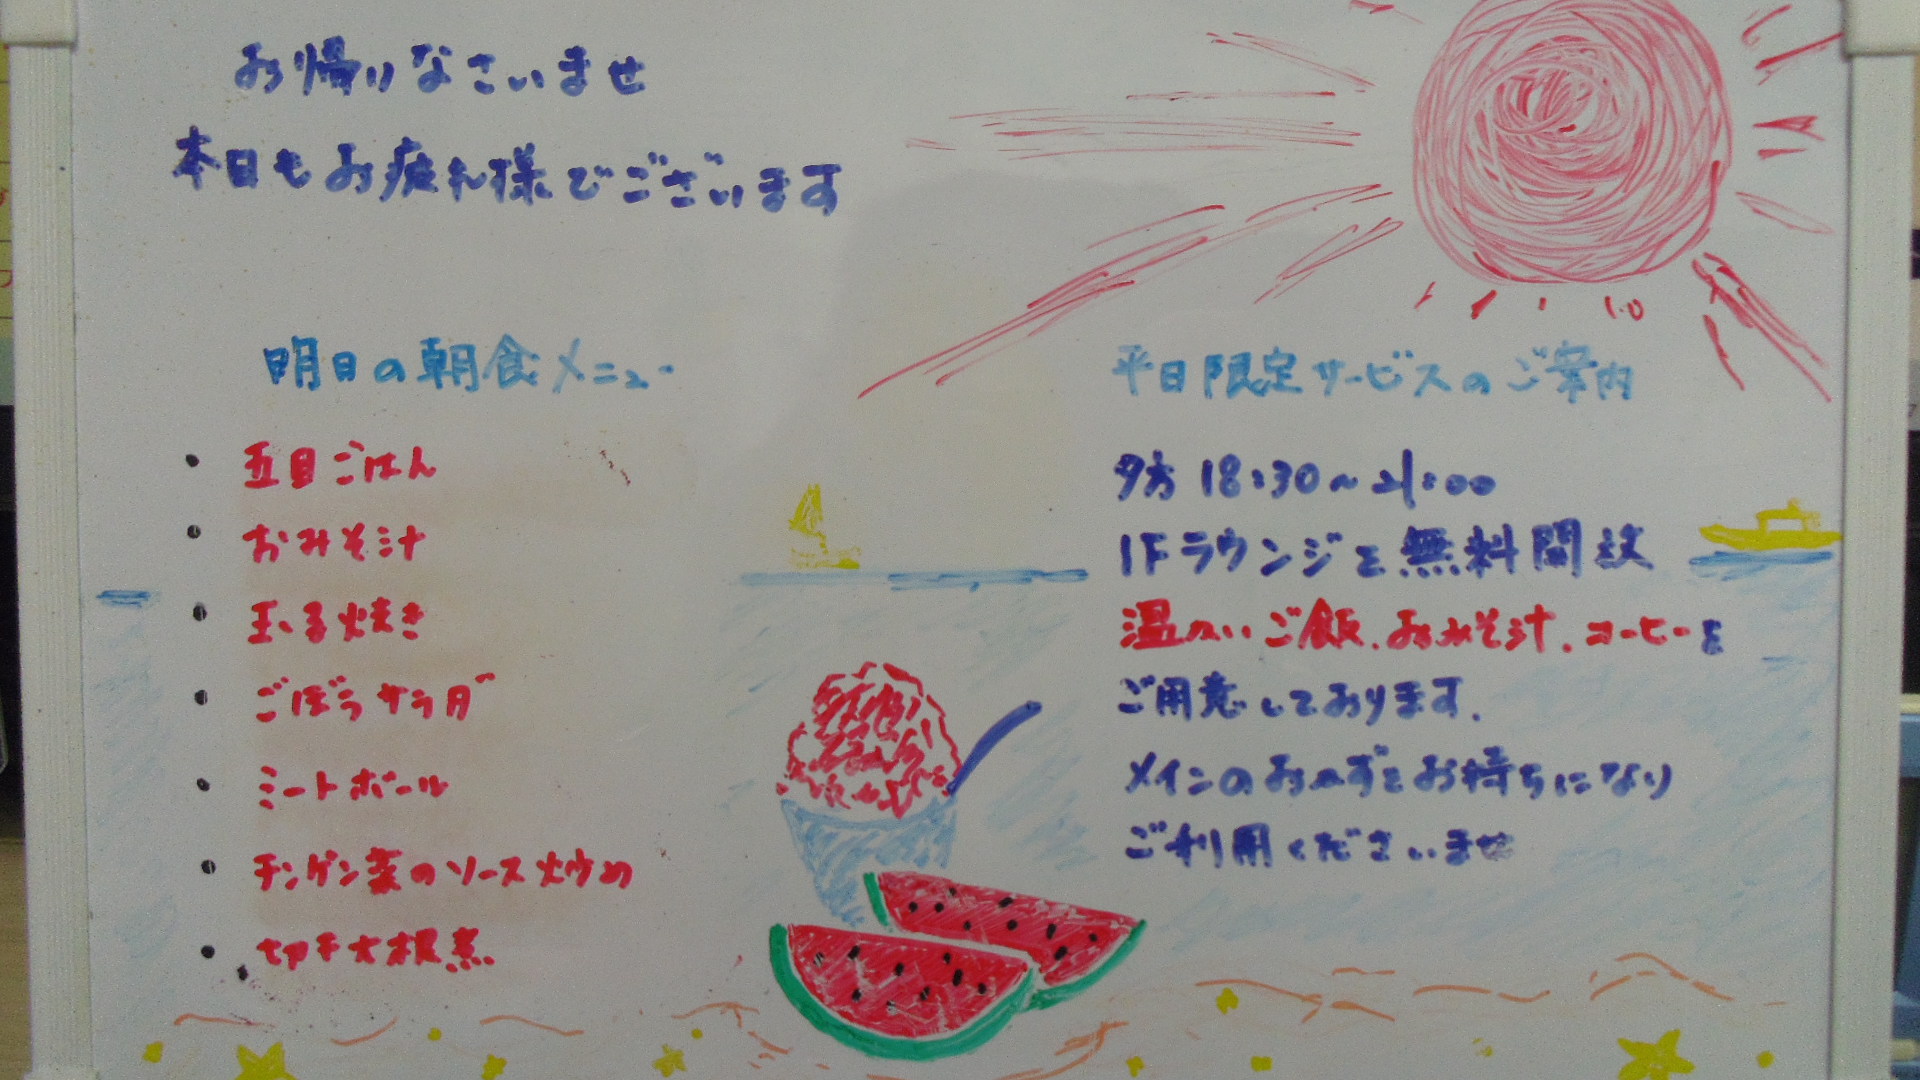 お帰りなさいませ
本日もお疲れ様でございます
明日の朝食メニュー
・五目ごはん
・おみそ汁
・玉子焼き
・ごぼうサラダ
・ミートボール
・チンゲン菜のソース炒め
・切干大根煮
平日限定サービスのご案内
夕方 18:30～21:00
1Fラウンジを無料開放
温かいご飯、おみそ汁、コーヒーを
ご用意しております。
メインのおかずをお持ちになり
ご利用くださいませ